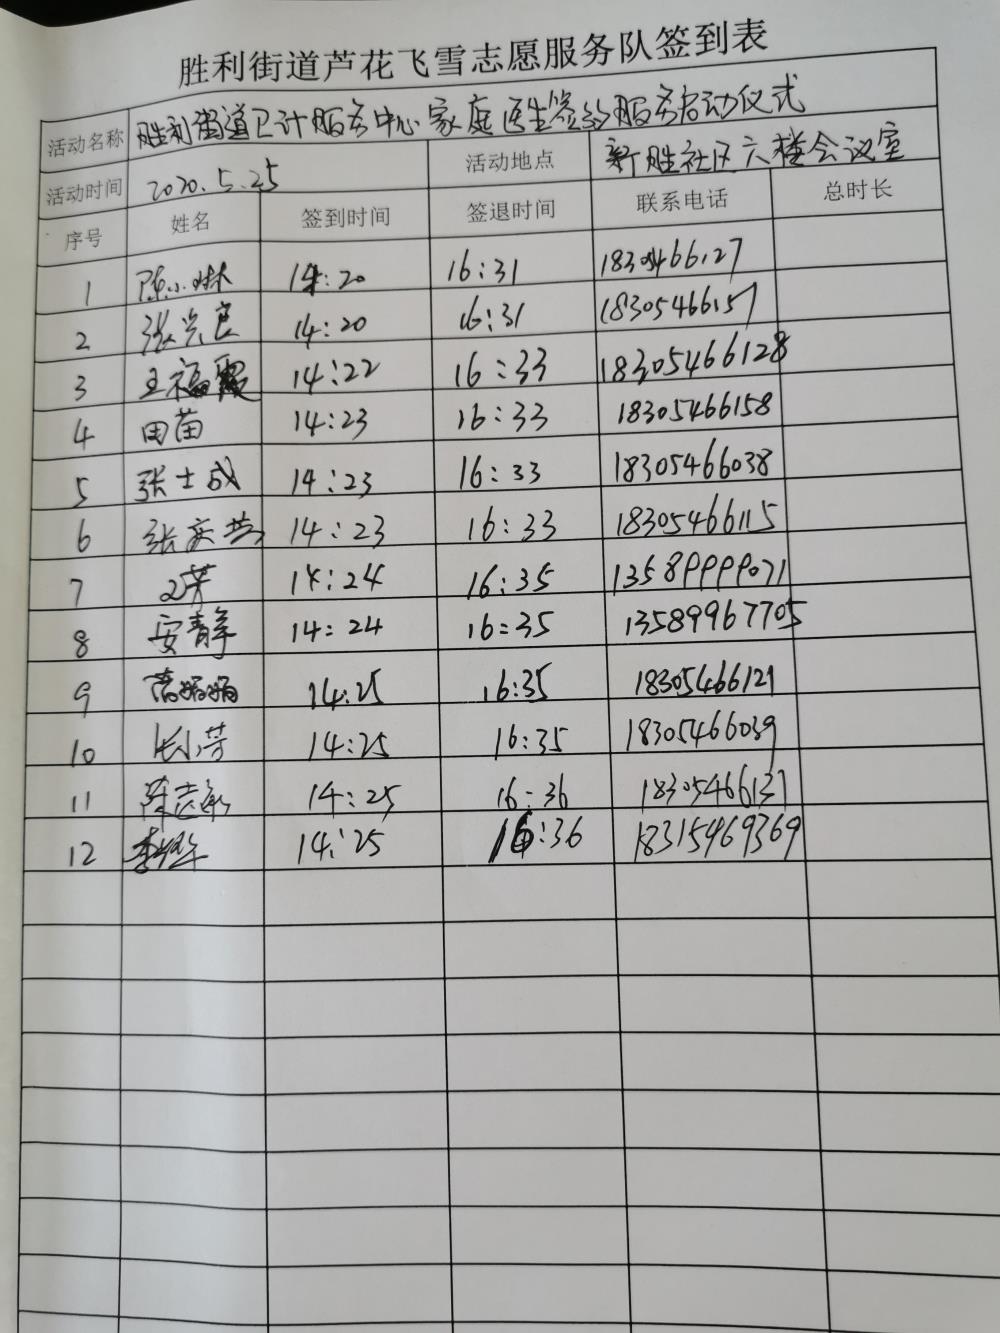 胜利街道芦花飞雪志愿服务队签到表
活动名称 胜利街道卫计服务中心家庭医生签约服务启动仪式
活动时间 2020.5.25 活动地点 新胜社区六楼会议室
序号 姓名 签到时间 签退时间 联系电话 总时长
1 陈小琳 14:20 16:31
2 张兴良 14:20 16:31 18305466157
3 王福霞 14:22 16:33 18305466128
4 田苗 14:23 16:33 18305466158
5 张士成 14:23 16:33 18305466038
6 14:23 16:33 18305466115
7 14:24 16:35 13589999071
8 安青华 14:24 16:35 13589967705
9 14:25 16:35 18305466121
10 14:25 16:35 18305466039
11 14:25 16:36 18305466137
12 14:25 16:36 18315469369